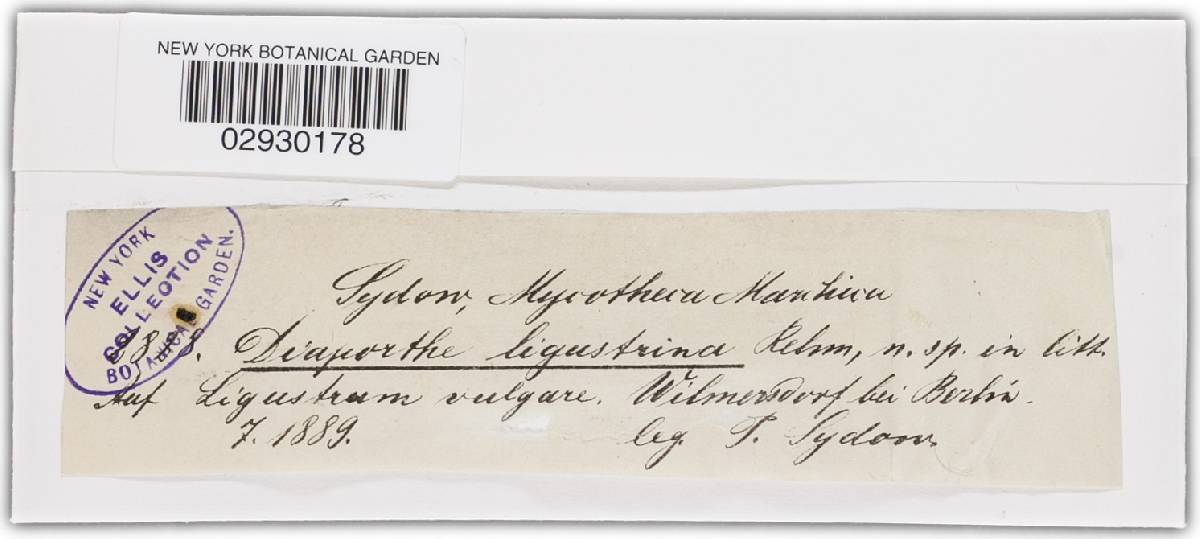 NEW YORK BOTANICAL GARDEN
02930178
NEW YORK
ELLIS
COLLECTION
BOTANICAL GARDEN.
Sydow, Mycotheca Marchica
Diaporthe ligustrina Rehm, n. sp. in litt.
Auf Ligustrum vulgare. Wilmersdorf bei Berlin.
7. 1889. leg. P. Sydow.